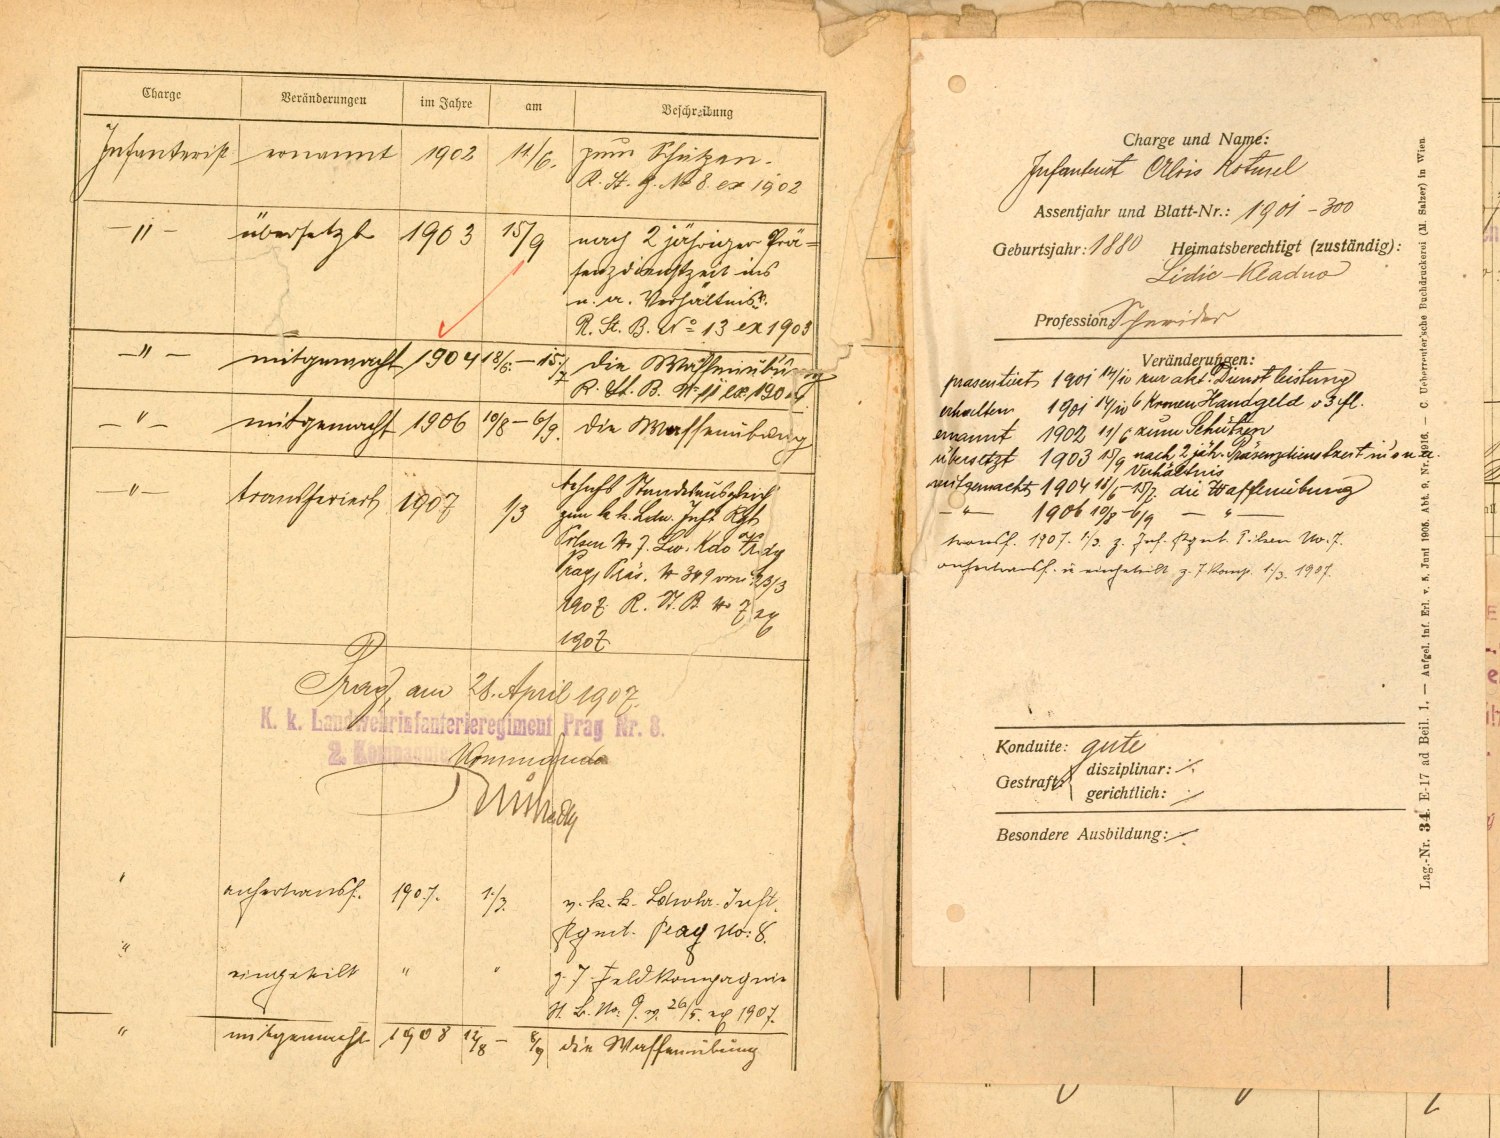 Charge Veränderungen im Jahre am Beschreibung
Infanterist ernannt 1902 11/6. zum Schützen.
R. St. B. No 8 ex 1902
-"- übersetzt 1903 15/9 nach 2 jähriger Prä=
senzdienstzeit ins
n. a. Verhältnis.
R. St. B. No 13 ex 1903
-"- mitgemacht 1904 18/6. - 15/7 die Waffenübung
R. St. B. No 11 ex 1904
-"- mitgemacht 1906 10/8 - 6/9. die Waffenübung
-"- transferiert 1907 1/3 behufs Standesausgleich
zum k. k. Ldw. Inft. Rgt.
Pilsen No 7. Lw. Kdo
Prag, Präs. No 349 vom 23/3
1907. R. St. B. No 7 ex
1907.
Prag, am 28. April 1907.
K. k. Landwehrinfanterieregiment Prag Nr. 8.
2. Kompagnie
Kommando
" anhertransf. 1907. 1./3. v. k. k. Ldwhr. Inft.
Rgmt. Prag No: 8.
" eingeteilt " " z. 7. Feldkompagnie
St. B. No: 9. v. 26/5. ex 1907.
" mitgemacht 1908 12/8 - 8/9 die Waffenübung
Charge und Name:
Infanterist Alois Kotmel
Assentjahr und Blatt-Nr.: 1901 - 300
Geburtsjahr: 1880 Heimatsberechtigt (zuständig):
Lidic - Kladno
Profession: Schneider
Veränderungen:
präsentiert 1901 14/10 zur akt. Dienstleistung
erhalten 1901 14/10 6 Kronen Handgeld v 3 fl.
ernannt 1902 11/6 zum Schützen
übersetzt 1903 15/9 nach 2 jäh. Präsenzdienstzeit in's n. a.
Verhältnis
mitgemacht 1904 18/6 - 15/7. die Waffenübung
-"- 1906 10/8 - 6/9 - " -
transf. 1907. 1./3. z. Inf. Rgmt. Pilsen No. 7.
anhertransf. u eingeteilt z. 7 Komp. 1./3. 1907.
Konduite: gute
Gestraft: disziplinar: ./.
gerichtlich: ./.
Besondere Ausbildung: ./.
Lag.-Nr. 34. E-17 ad Beil. 1. — Aufgel. inf. Erl. v. 8. Juni 1906. Abt. 9, Nr. 1916. — C. Ueberreuter'sche Buchdruckerei (M. Salzer) in Wien